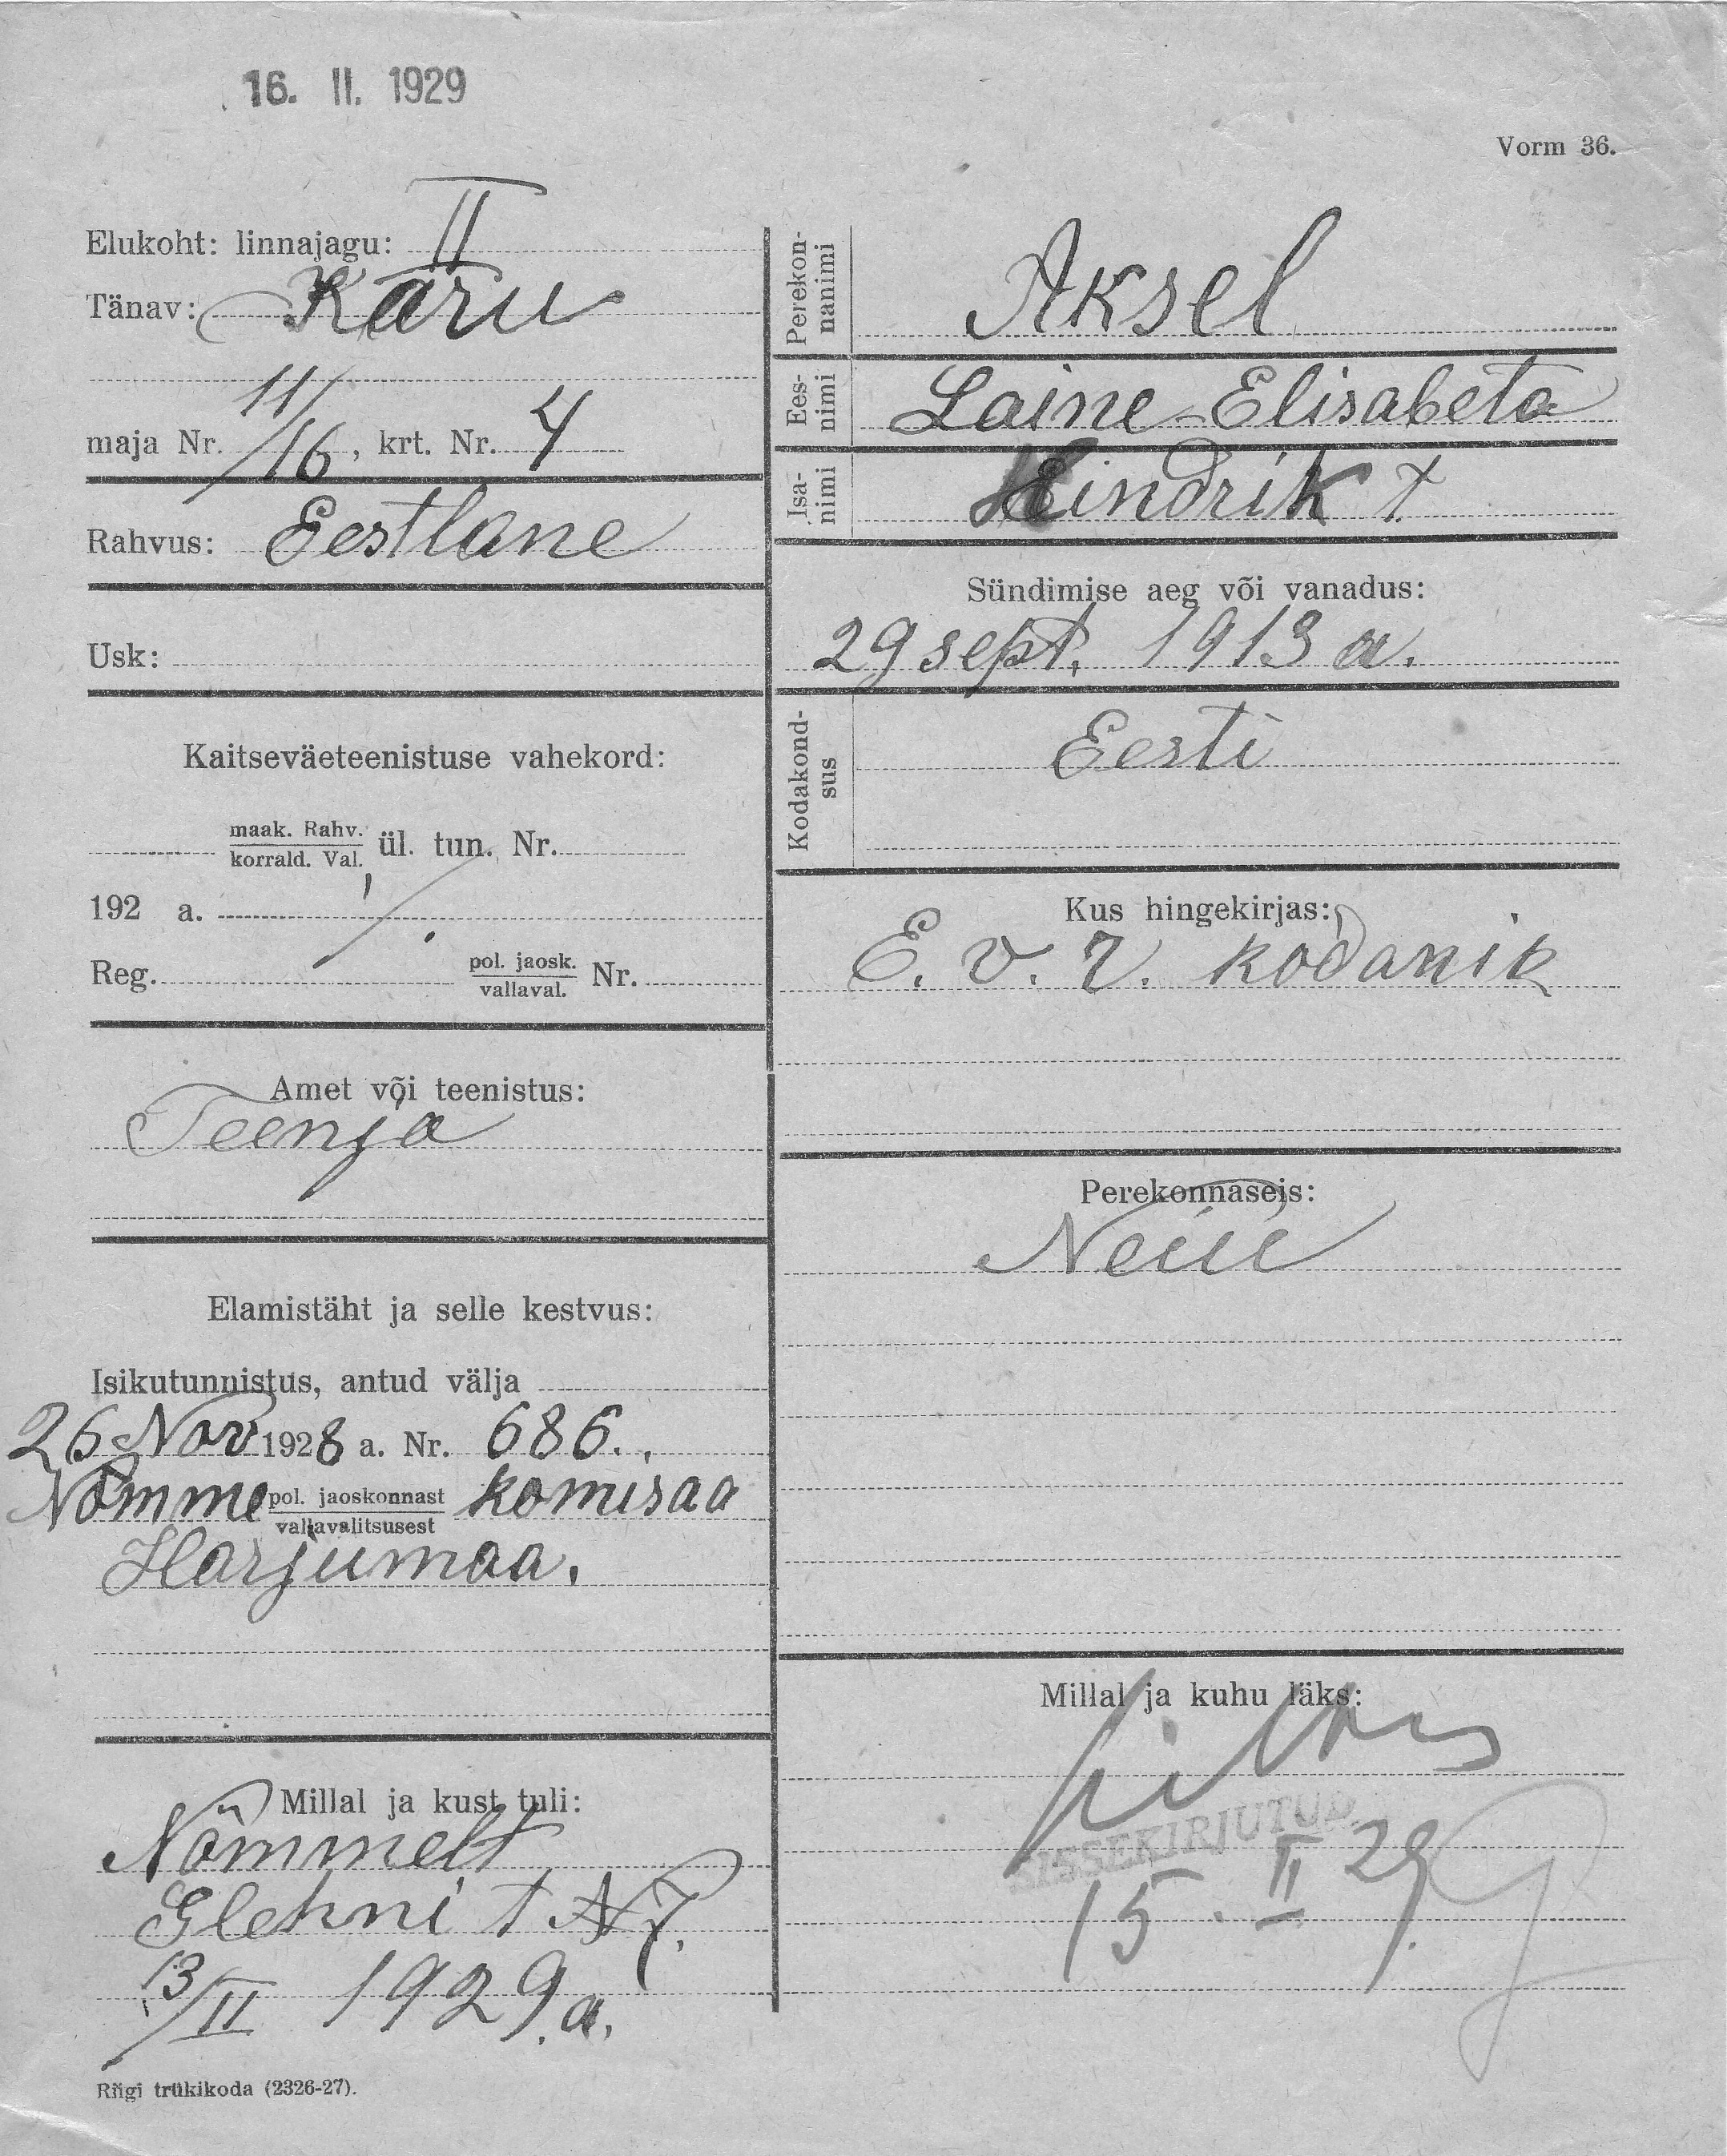 16. II. 1929
Vorm 36.
Elukoht: linnajagu: II
Tänav: Karu
11/16
maja Nr. , krt. Nr. 4
Rahvus: Eestlane
Usk:
Kaitseväeteenistuse vahekord:
maak. Rahv.
korrald. Val. ül. tun. Nr.
192 a.
Reg. pol. jaosk. Nr.
vallaval.
Amet või teenistus:
Teenja
Elamistäht ja selle kestvus:
Isikutunnistus, antud välja
26 Nov 1928 a. Nr. 686.
Nõmme pol. jaoskonnast komisaa
vallavalitsusest
Harjumaa.
Millal ja kust tuli:
Nõmmelt
Glehni t № 7.
13/II 1929.a.
Riigi trükikoda (2326-27).
Perekon-
nanimi
Aksel
Ees-
nimi
Laine-Elisabeta
Isa-
nimi
Hindrik t.
Sündimise aeg või vanadus:
29 sept. 1913 a.
Kodakond-
sus
Eesti
Kus hingekirjas:
E. v. v. kodanik
Perekonnaseis:
Neiu
Millal ja kuhu läks:
SISSEKIRJUTUD
15. II 29